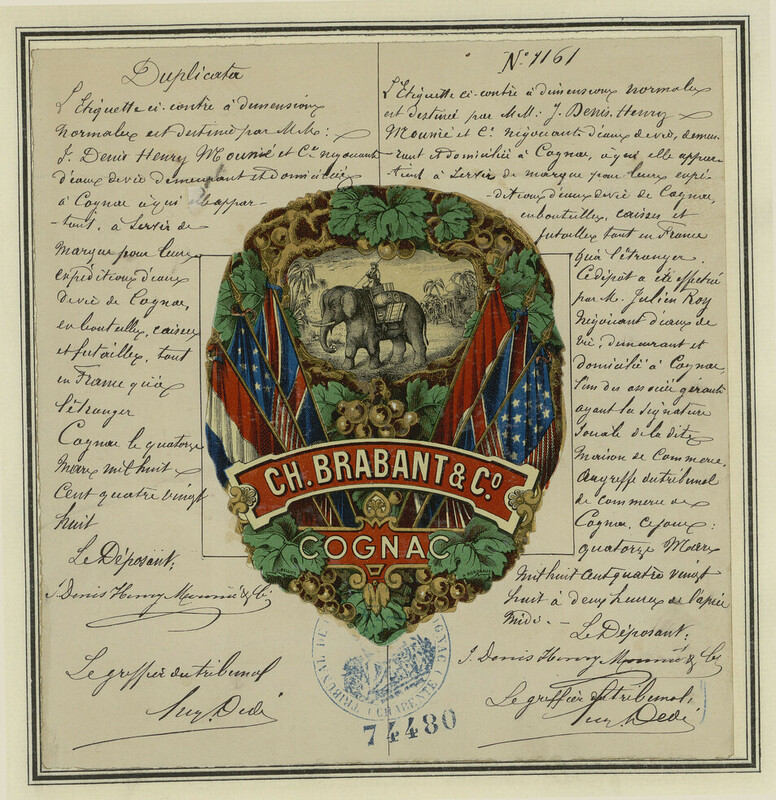 Duplicata
L'Etiquette ci-contre à dimensions
normales est destinée par M.M:
J. Denis Henry Mounié et Cie négociants
d'eaux de vie demeurant et domiciliés
à Cognac à qui elle appar-
-tient, à servir de
marque pour leurs
expéditions d'eaux
de vie de Cognac,
en bouteilles, caisses
et futailles, tant
en France qu'à
l'étranger
Cognac le quatorze
Mars mil huit
cent quatre vingt
huit
Le Déposant,
J. Denis Henry Mounié & Co
Le greffier du tribunal
Aug. Dedé
No 7161
L'Etiquette ci-contre à dimensions normales
est destinée par M.M: J. Denis Henry
Mounié et Co négociants d'eaux de vie, demeu-
rant et domiciliés à Cognac, à qui elle appar-
tient à servir de marque pour leurs expé-
ditions d'eaux de vie de Cognac,
en bouteilles, caisses et
futailles tant en France
qu'à l'étranger.
Ce dépôt a été effectué
par M. Julien Roy
négociant d'eaux de
vie, demeurant et
domicilié à Cognac,
l'un des associés gérants
ayant la signature
sociale de la dite
Maison de Commerce,
au greffe du tribunal
de commerce de
Cognac, ce jour:
quatorze Mars
mil huit cent quatre vingt
huit à deux heures de l'après
midi. -
Le Déposant:
J. Denis Henry Mounié & Co
Le greffier du tribunal,
Aug. Dedé
CH. BRABANT & Co.
COGNAC
TRIBUNAL DE COGNAC (CHARENTE)
74480